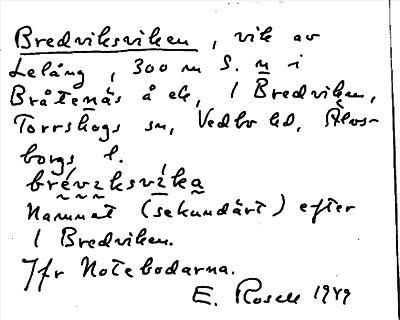 Bredviksviken, vik av
Lelång, 300 m S. n i
Bråtenäs å ek, 1 Bredviken,
Torrskogs sn, Vedbo hd, Älvs-
borgs l.
brévɩksvɩ́ka
Namnet (sekundärt) efter
1 Bredviken.
Jfr Notebodarna.
E. Rosell 1949